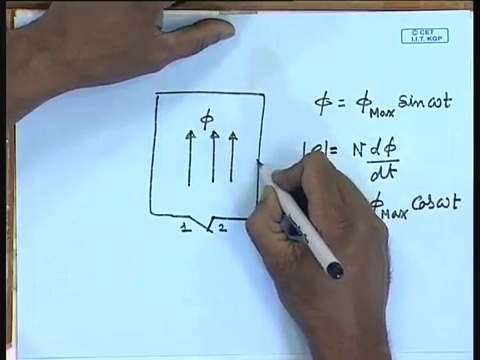 © CET
I.I.T. KGP
ϕ
ϕ = ϕ Max sin ωt
= N dϕ/dt
ϕ Max Cos ωt
1 2